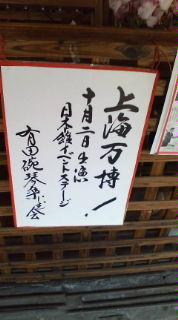 上海万博!
十月二日出演
日本館イベントステージ
有田碗琴楽会